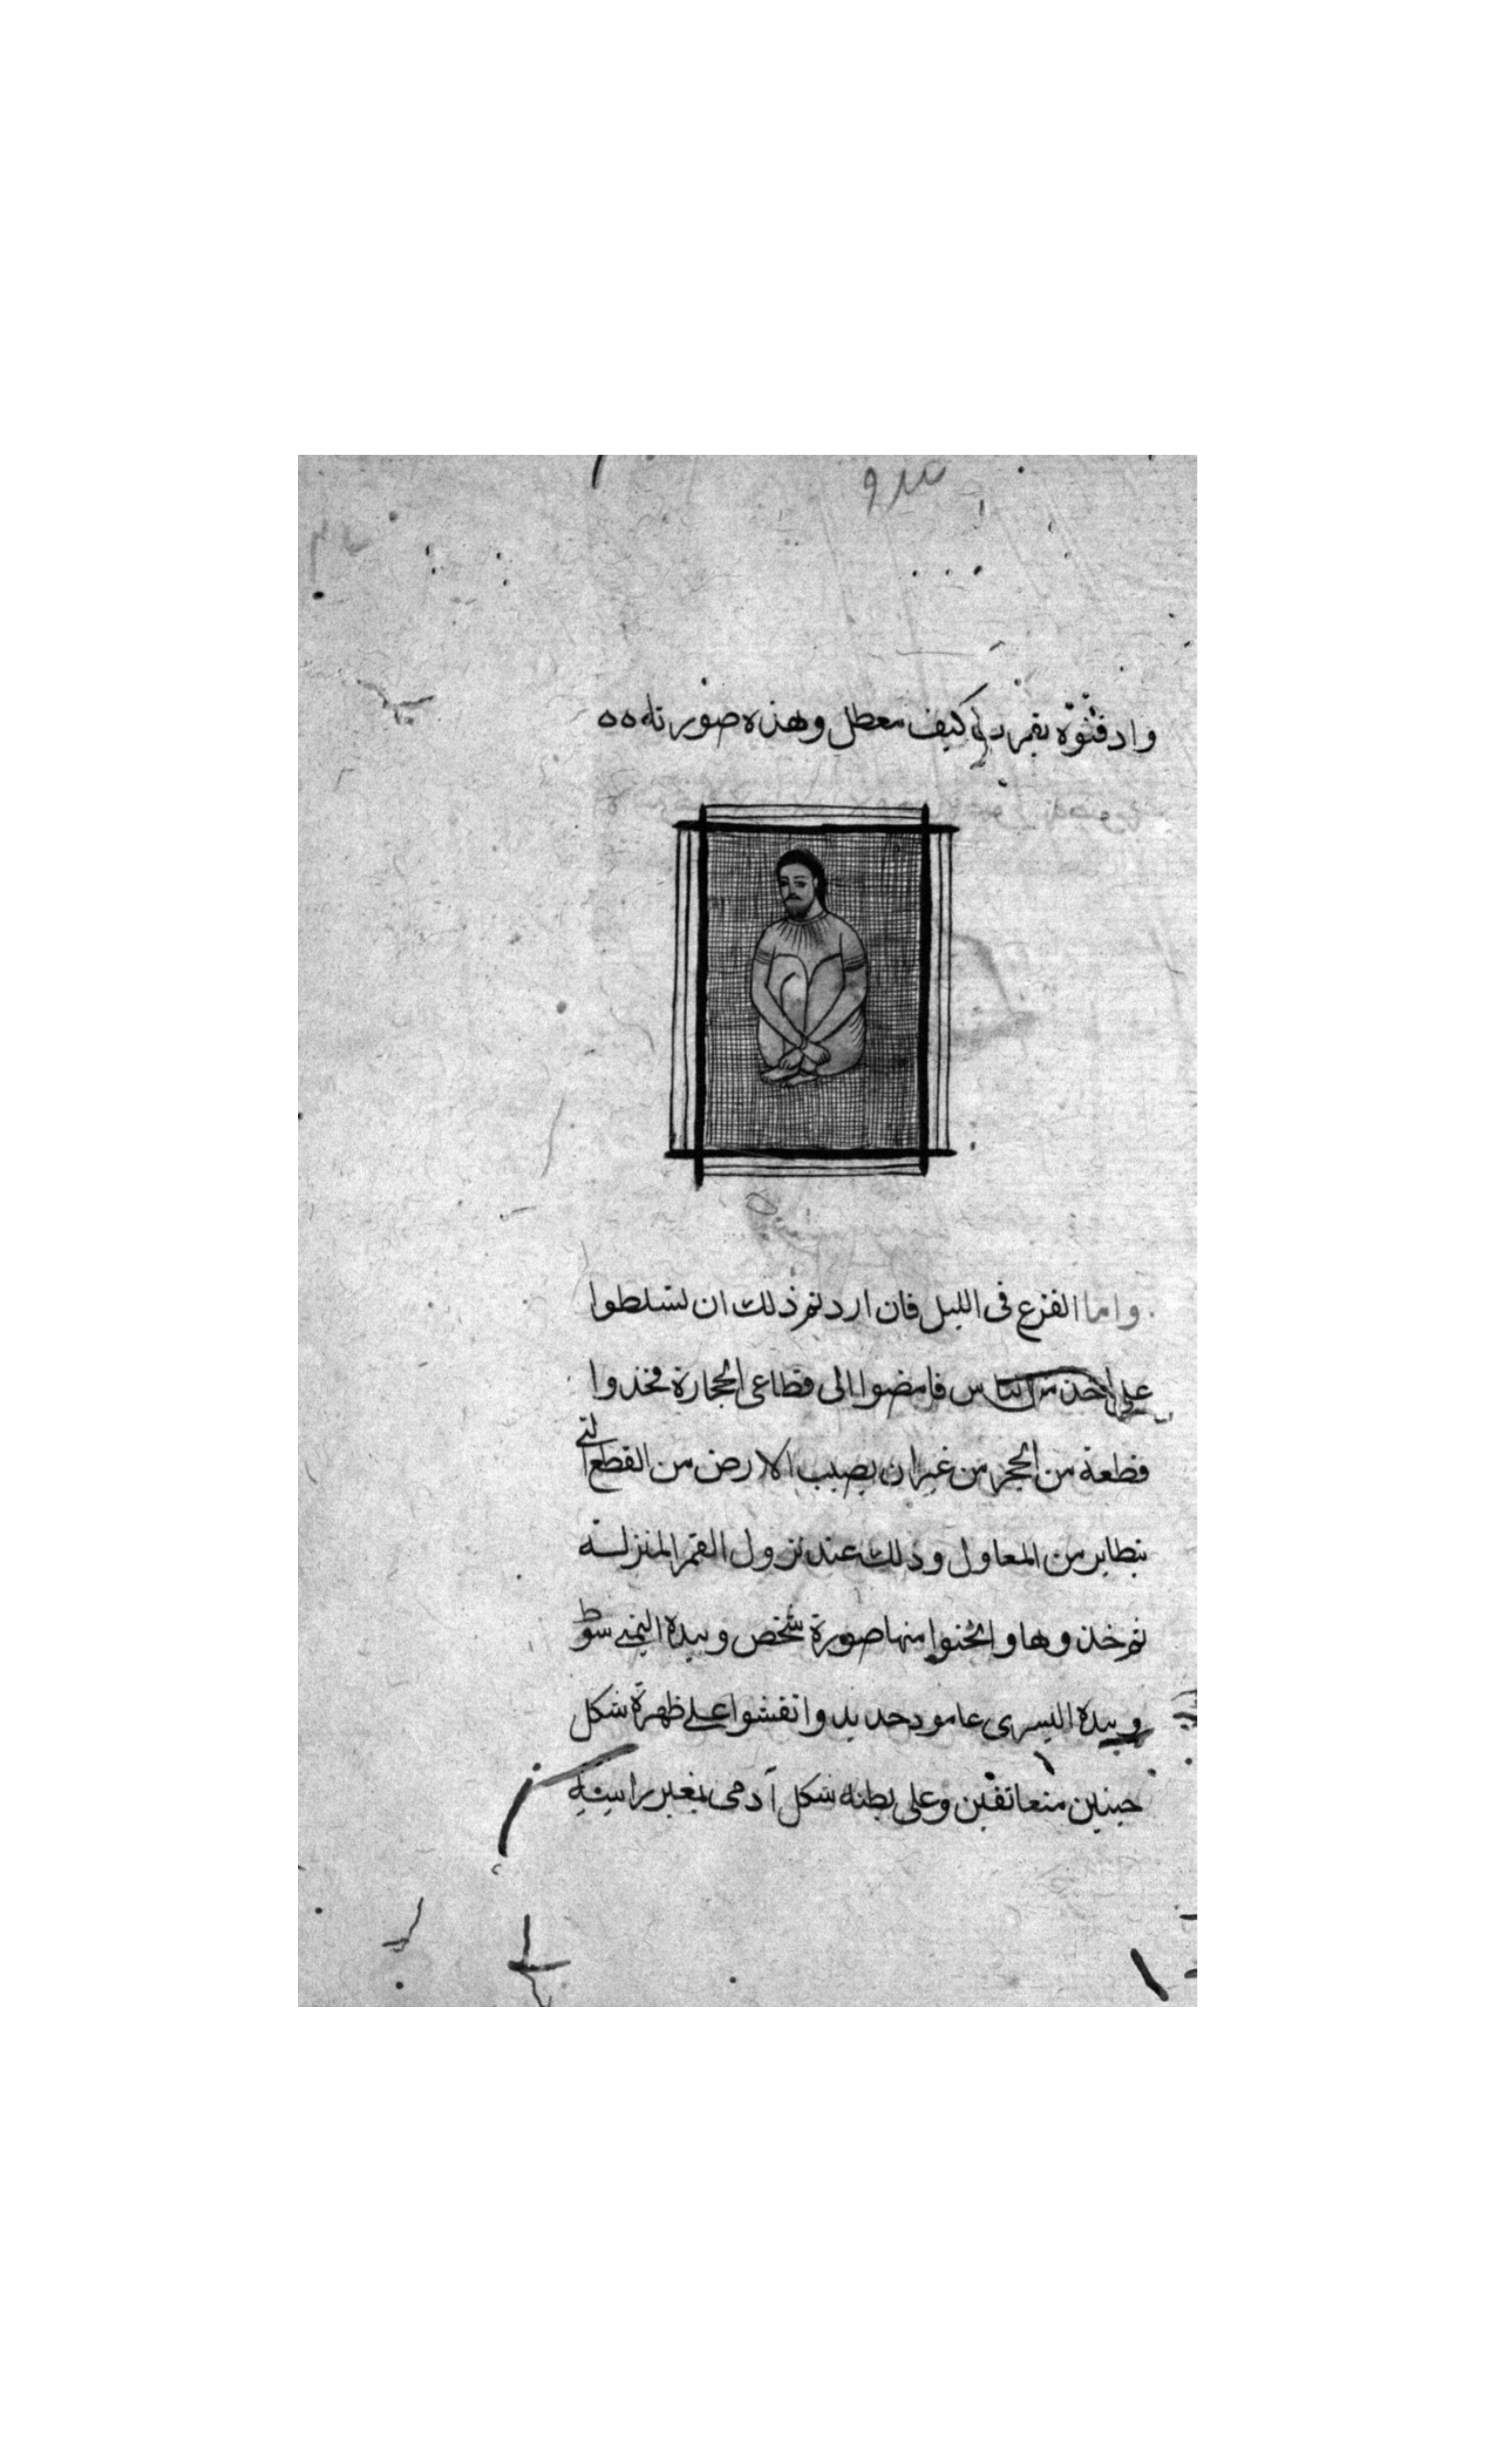 وادفنوه بقمر دلى كنيف معطل وهذه صورته ٥٥
واما الفزع فى الليل فان اردتم ذلك ان تسلطوا
على احد من الناس فامضوا الى قطاعى الحجارة فخذوا
قطعة من الحجر من غير ان يصيب الارض من القطع التى
تتطاير من المعاول وذلك عند نزول القمر المنزلة
ثم خذوها وانحتوا منها صورة شخص وبيده اليمنى سوط
وبيده اليسرى عامود حديد وانقشوا على ظهره شكل
متعانقين وعلى بطنه شكل آدمى بغير راس